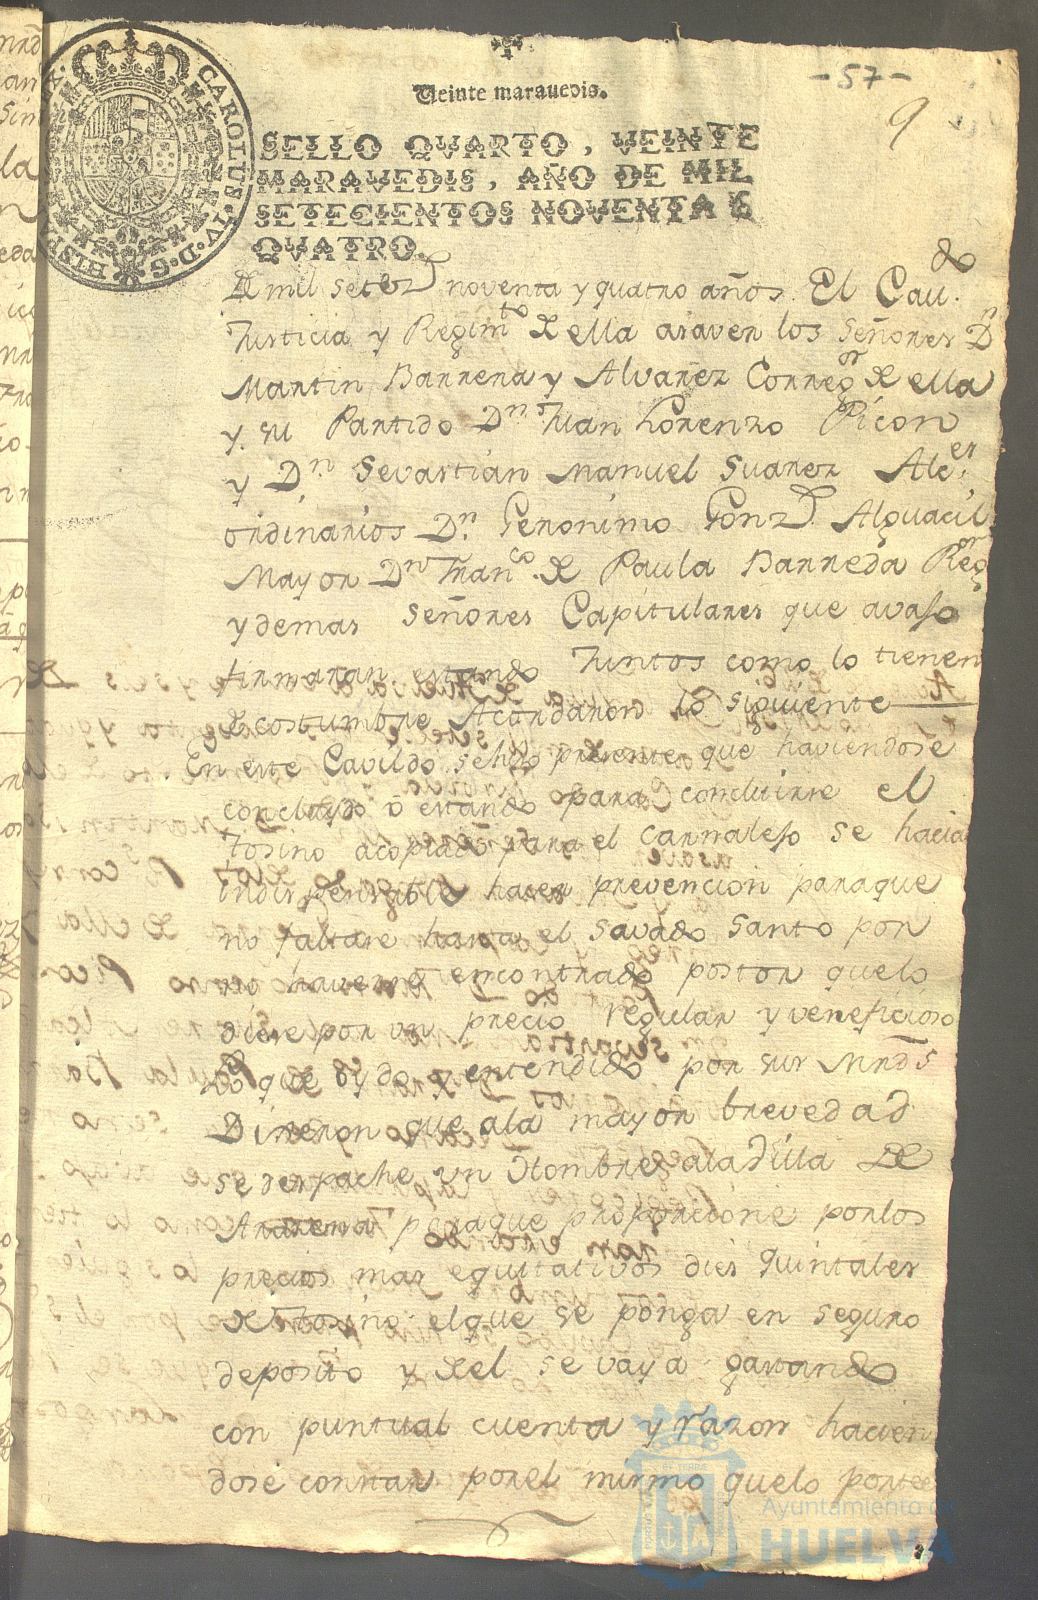 -57-
9
Veinte marauedis.
CAROLUS·IV·D·G·HISP
SELLO QVARTO, VEINTE
MARAVEDIS, AÑO DE MIL
SETECIENTOS NOVENTA E
QVATRO.
De mil setez.s noventa y quatro años. El Cau.do
Justicia y Regim.to de ella asaver los Señores D.n
Martin Barrena y Alvarez Correg.or de ella
y su Partido D.n Juan Lorenzo Picon
y D.n Sevastian Manuel Suarez Alc.es
ordinarios D.n Geronimo Gonz.z Alguacil
Mayor D.n Fran.co de Paula Barreda Reg.or
y demas Señores Capitulares que avajo
firmaran estando Juntos como lo tienen
de costumbre Acordaron lo siguiente
En este Cavildo se hizo presente que haviendose
concluydo ó estando para concluirse el
tosino acopiado para el carnalejo se hacia
indispensable hacer prevencion paraque
no faltare hasta el Savado Santo por
no haverse encontrado postor quelo
diese por un precio regular y veneficioso
lo que oydo y entendido por sus mrds
Dixeron que ala mayor brevedad
se despache un Hombre ala Villa de
Arasena paraque proporcione porlos
precios mas equitativos dies quintales
de tosino elque se ponga en seguro
deposito y del se vaya gastando
con puntual cuenta y razon hacien
dose constar porel mismo quelo portee
Ayuntamiento de
HUELVA